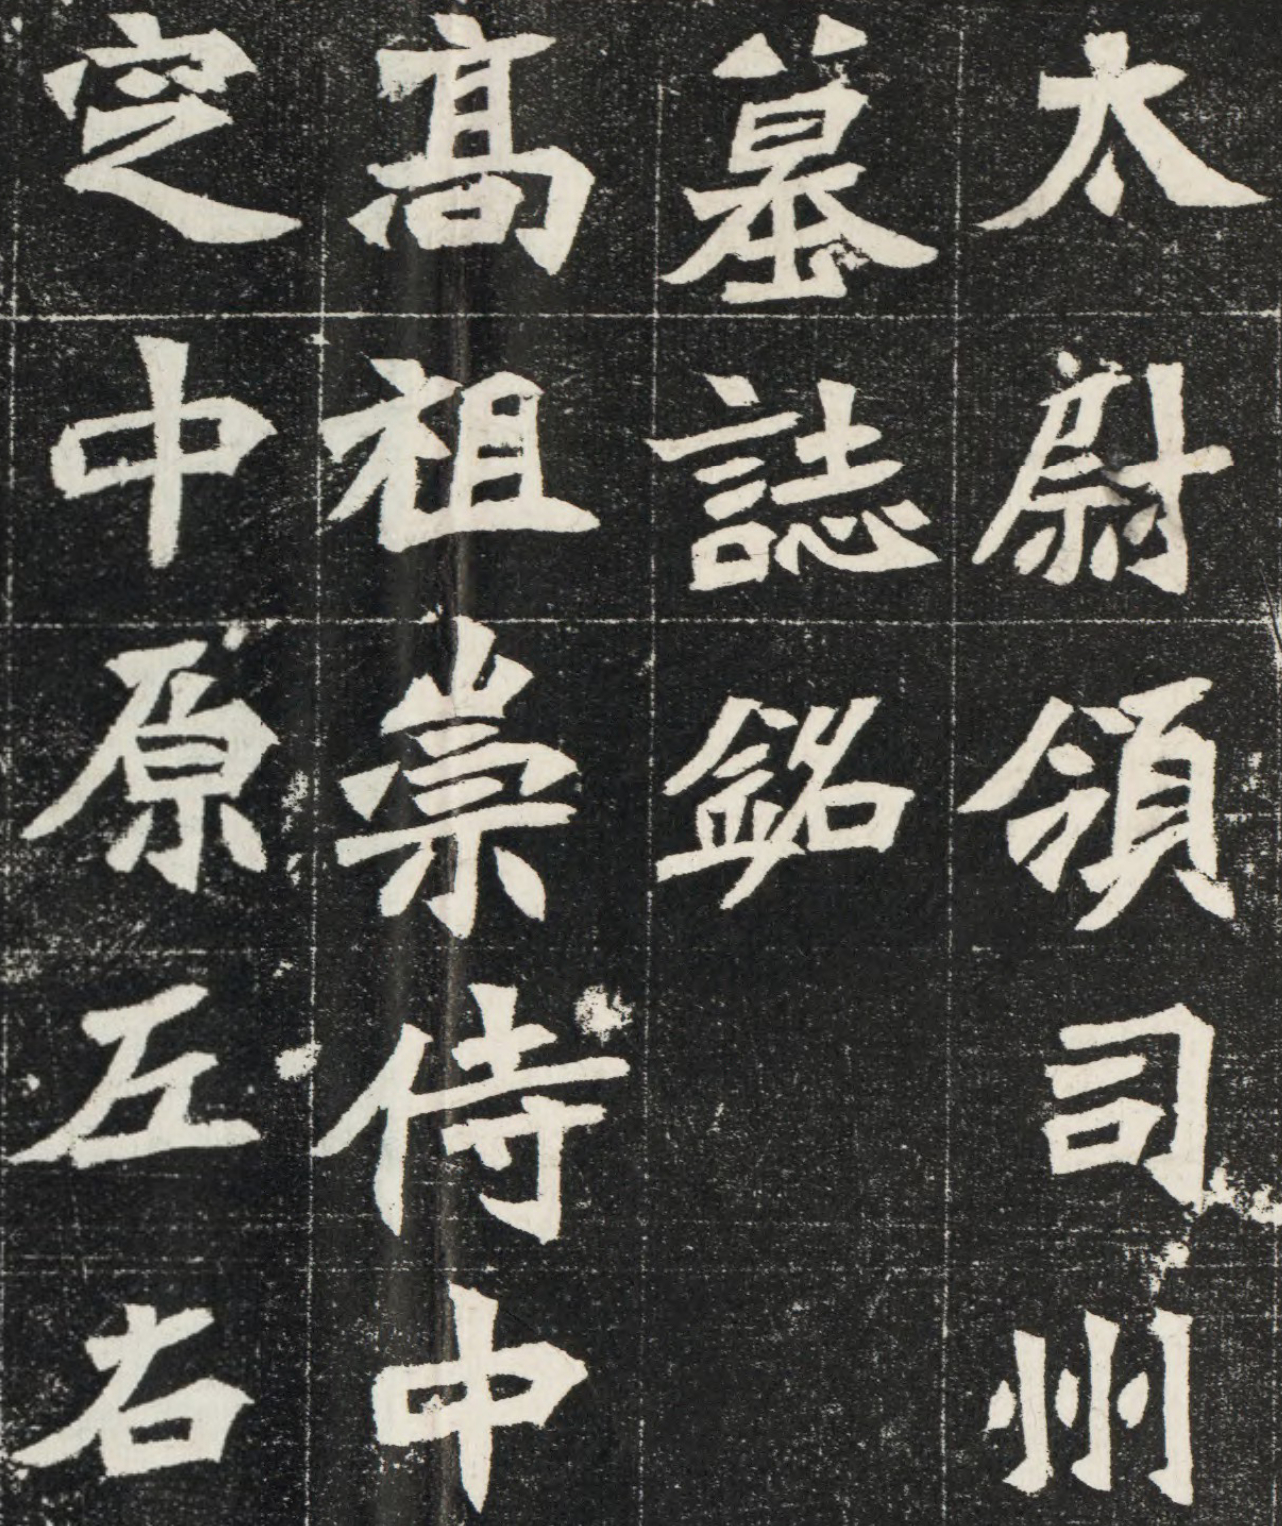 太尉領司州
墓誌銘
高祖崇侍中
定中原左右